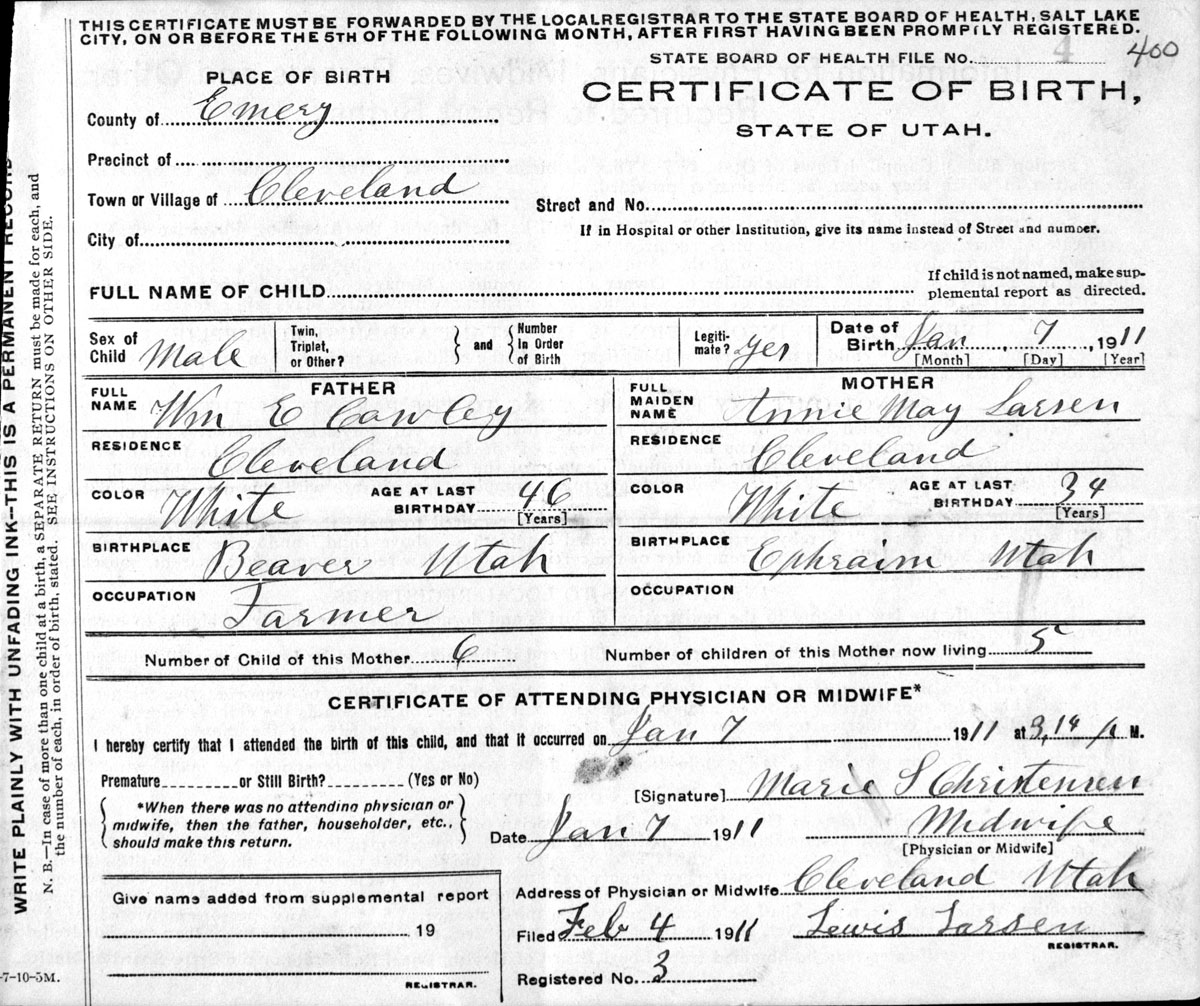 THIS CERTIFICATE MUST BE FORWARDED BY THE LOCALREGISTRAR TO THE STATE BOARD OF HEALTH, SALT LAKE
CITY, ON OR BEFORE THE 5TH OF THE FOLLOWING MONTH, AFTER FIRST HAVING BEEN PROMPLY REGISTERED.
STATE BOARD OF HEALTH FILE No. 4 400
PLACE OF BIRTH
CERTIFICATE OF BIRTH,
STATE OF UTAH.
County of Emery
Precinct of
Town or Village of Cleveland
Street and No.
City of
If in Hospital or other Institution, give its name instead of Street and number.
FULL NAME OF CHILD
If child is not named, make sup-
plemental report as directed.
Sex of Child Male
Twin, Triplet, or Other?
and
Number In Order of Birth
Legiti-mate? yes
Date of Birth Jan 7, 1911
[Month] [Day] [Year]
FATHER
FULL NAME Wm E Cowley
RESIDENCE Cleveland
COLOR White AGE AT LAST BIRTHDAY 46 [Years]
BIRTHPLACE Beaver Utah
OCCUPATION Farmer
MOTHER
FULL MAIDEN NAME Annie May Larsen
RESIDENCE Cleveland
COLOR White AGE AT LAST BIRTHDAY 34 [Years]
BIRTHPLACE Ephraim Utah
OCCUPATION
Number of Child of this Mother 6 Number of children of this Mother now living 5
CERTIFICATE OF ATTENDING PHYSICIAN OR MIDWIFE*
I hereby certify that I attended the birth of this child, and that it occurred on Jan 7 1911 at A M.
Premature or Still Birth? (Yes or No)
*When there was no attending physician or
midwife, then the father, householder, etc.,
should make this return.
[Signature] Marie S Christensen
Date Jan 7 1911 Midwife
[Physician or Midwife]
Give name added from supplemental report
19
REGISTRAR.
Address of Physician or Midwife Cleveland Utah
Filed Feb 4 1911 Lewis Larsen
REGISTRAR.
Registered No. 3
WRITE PLAINLY WITH UNFADING INK--THIS IS A PERMANENT RECORD
N. B.—In case of more than one child at a birth, a SEPARATE RETURN must be made for each, and
the number of each, in order of birth, stated. SEE INSTRUCTIONS ON OTHER SIDE.
-7-10-5M.